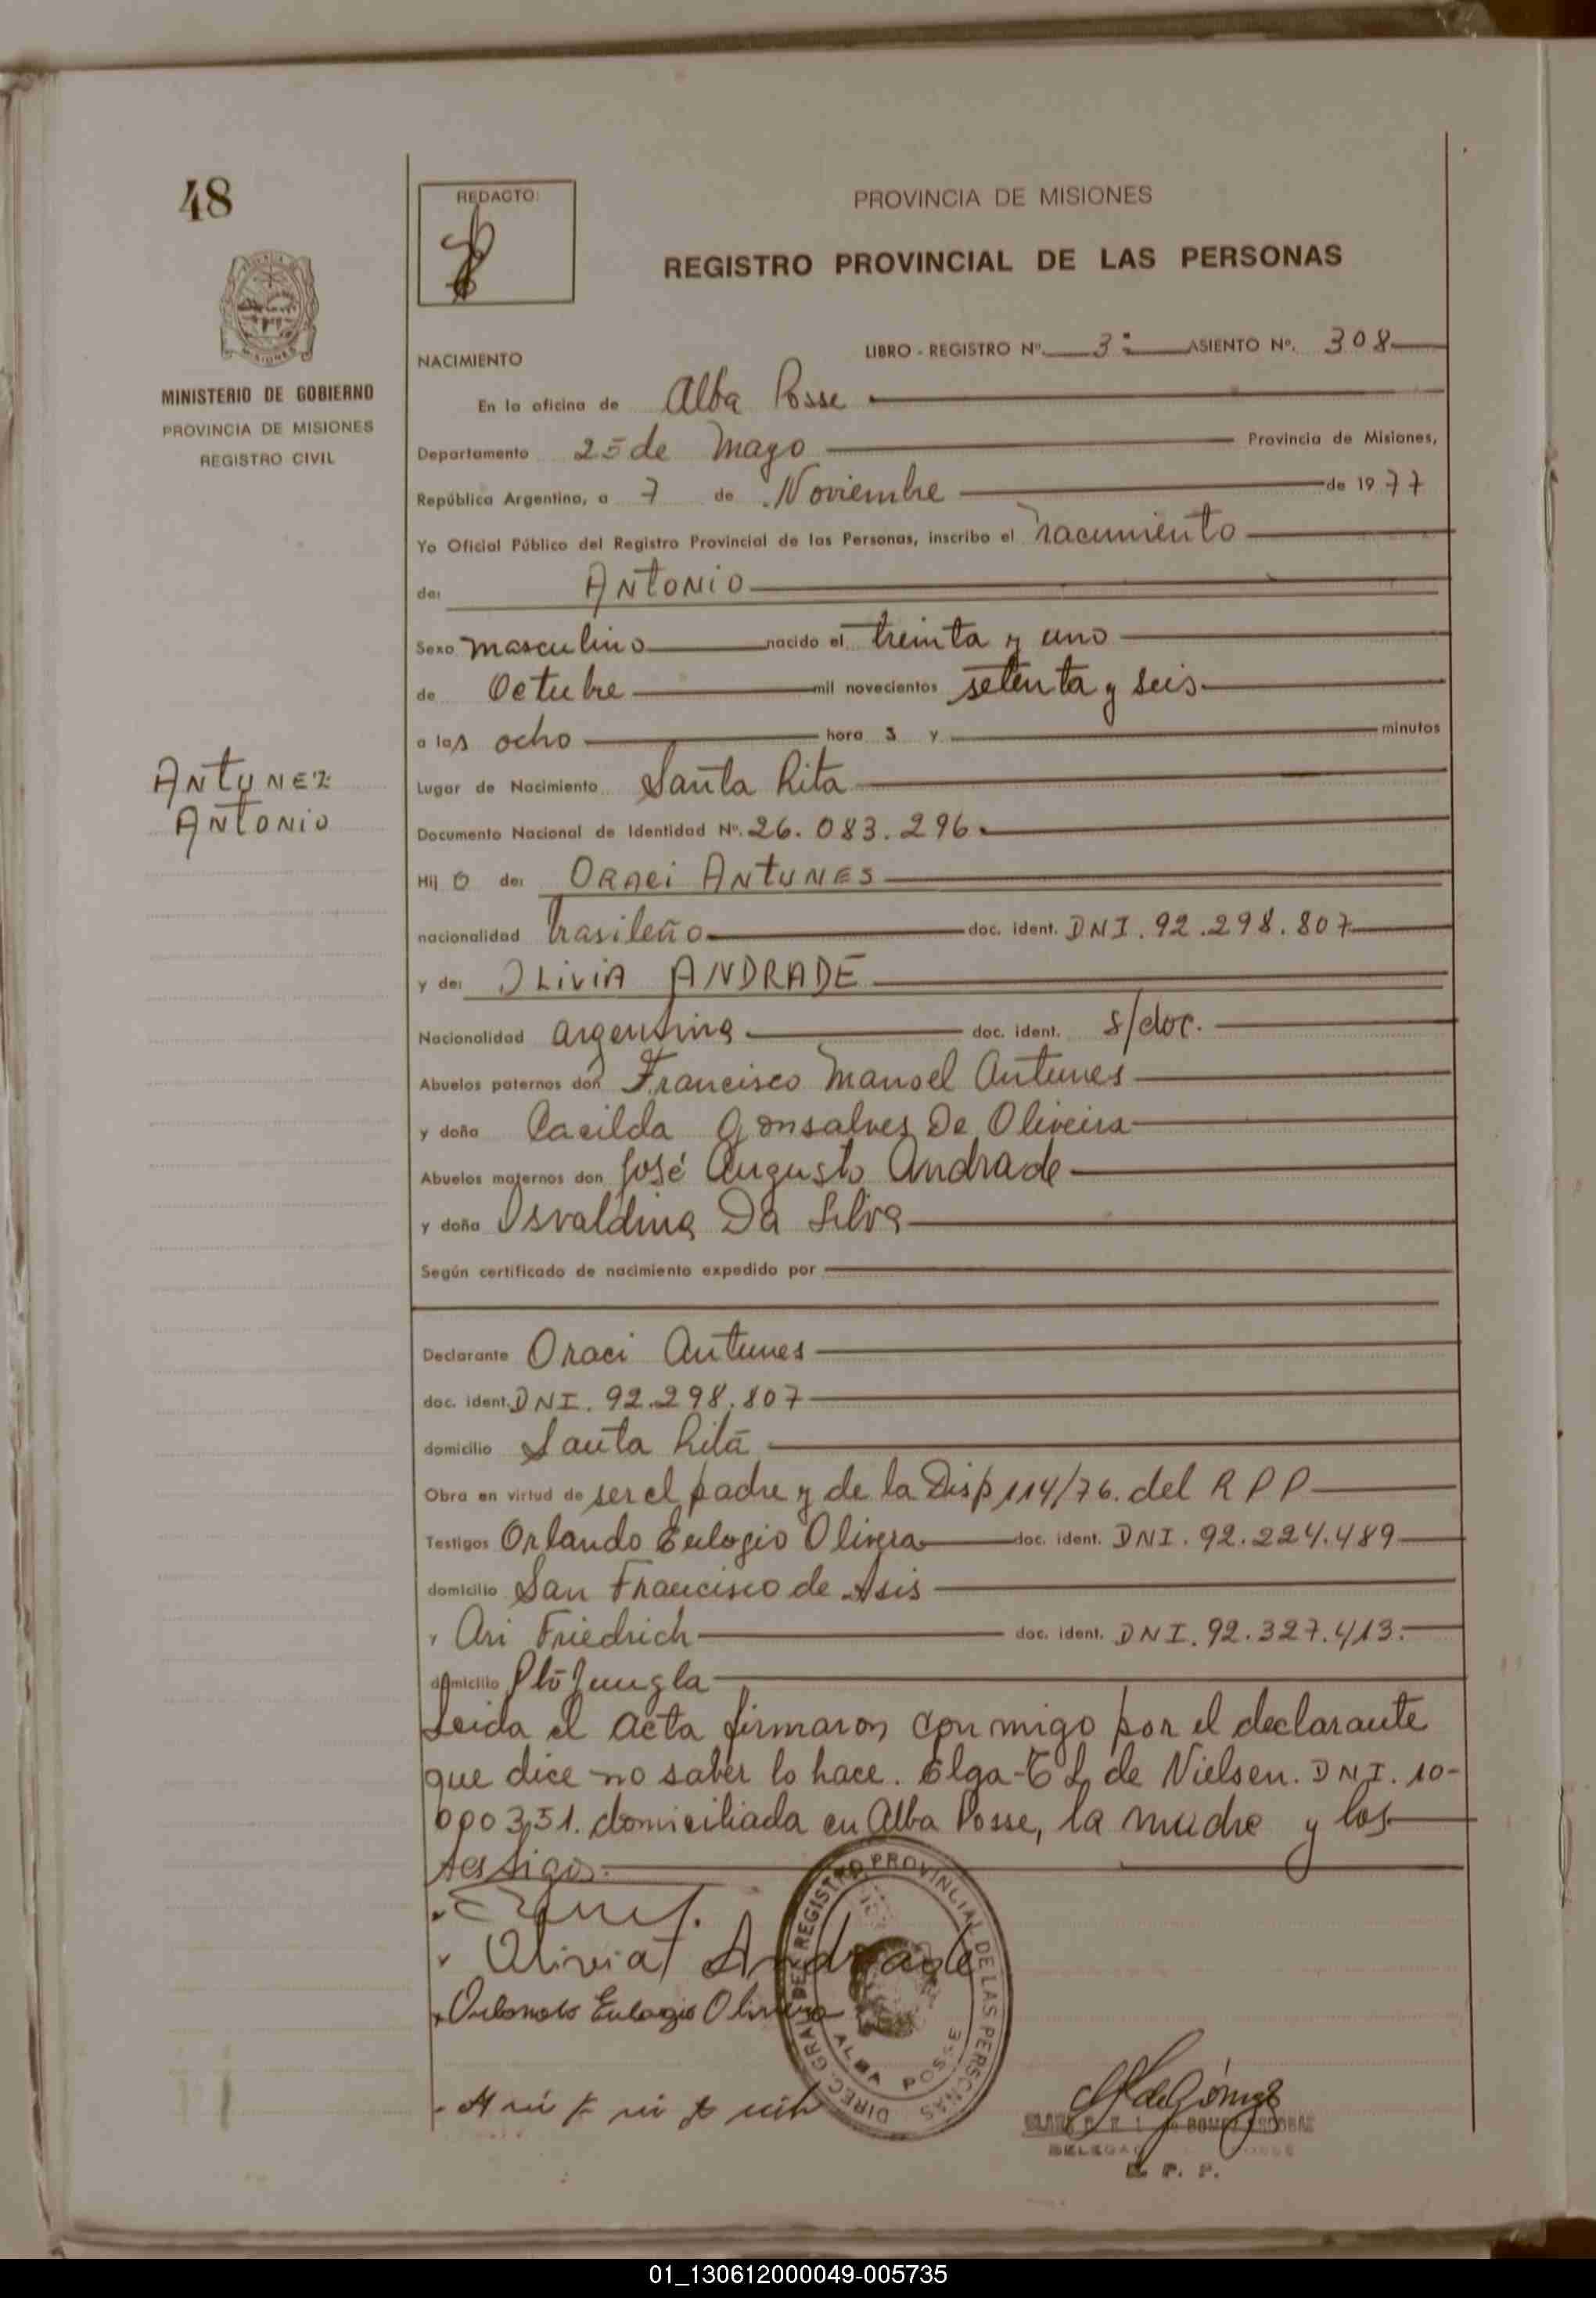 48
REDACTO:
PROVINCIA DE MISIONES
REGISTRO PROVINCIAL DE LAS PERSONAS
MISIONES
MINISTERIO DE GOBIERNO
PROVINCIA DE MISIONES
REGISTRO CIVIL
LIBRO - REGISTRO Nº. 3: ASIENTO Nº. 308
NACIMIENTO
En la oficina de Alba Posse
Departamento 25 de Mayo Provincia de Misiones,
República Argentina, a 7 de Noviembre de 1977
Yo Oficial Público del Registro Provincial de las Personas, inscribo el nacimiento
de: ANTONIO
Sexo masculino nacido el treinta y uno
de Octubre mil novecientos setenta y seis
a las ocho hora s y minutos
ANTUNEZ
ANTONIO
Lugar de Nacimiento Santa Rita
Documento Nacional de Identidad Nº. 26.083.296
Hij o de: ORACI ANTUNES
nacionalidad brasileño doc. ident. DNI. 92.298.807
y de: OLIVIA ANDRADE
Nacionalidad argentina doc. ident. s/doc.
Abuelos paternos don Francisco Manoel Antunes
y doña Cacilda Gonsalves De Oliveira
Abuelos maternos don José Augusto Andrade
y doña Osvaldina Da Silva
Según certificado de nacimiento expedido por
Declarante Oraci Antunes
doc. ident. DNI. 92.298.807
domicilio Santa Rita
Obra en virtud de ser el padre y de la Disp 114/76. del R P P
Testigos Orlando Eulogio Olivera doc. ident. DNI. 92.224.489
domicilio San Francisco de Asis
y Ari Friedrich doc. ident. DNI. 92.327.413.
domicilio Pto Jungla
Leida el acta firmaron conmigo por el declarante
que dice no saber lo hace. Elga E L de Nielsen. DNI. 10-
000351. domiciliada en Alba Posse, la madre y los
testigos.
Olivia Andrade
Orlando Eulogio Olivera
DIREC. GRAL. DEL REGISTRO PROVINCIAL DE LAS PERSONAS
ALBA POSSE
de Gómez
R. P. P.
01_130612000049-005735